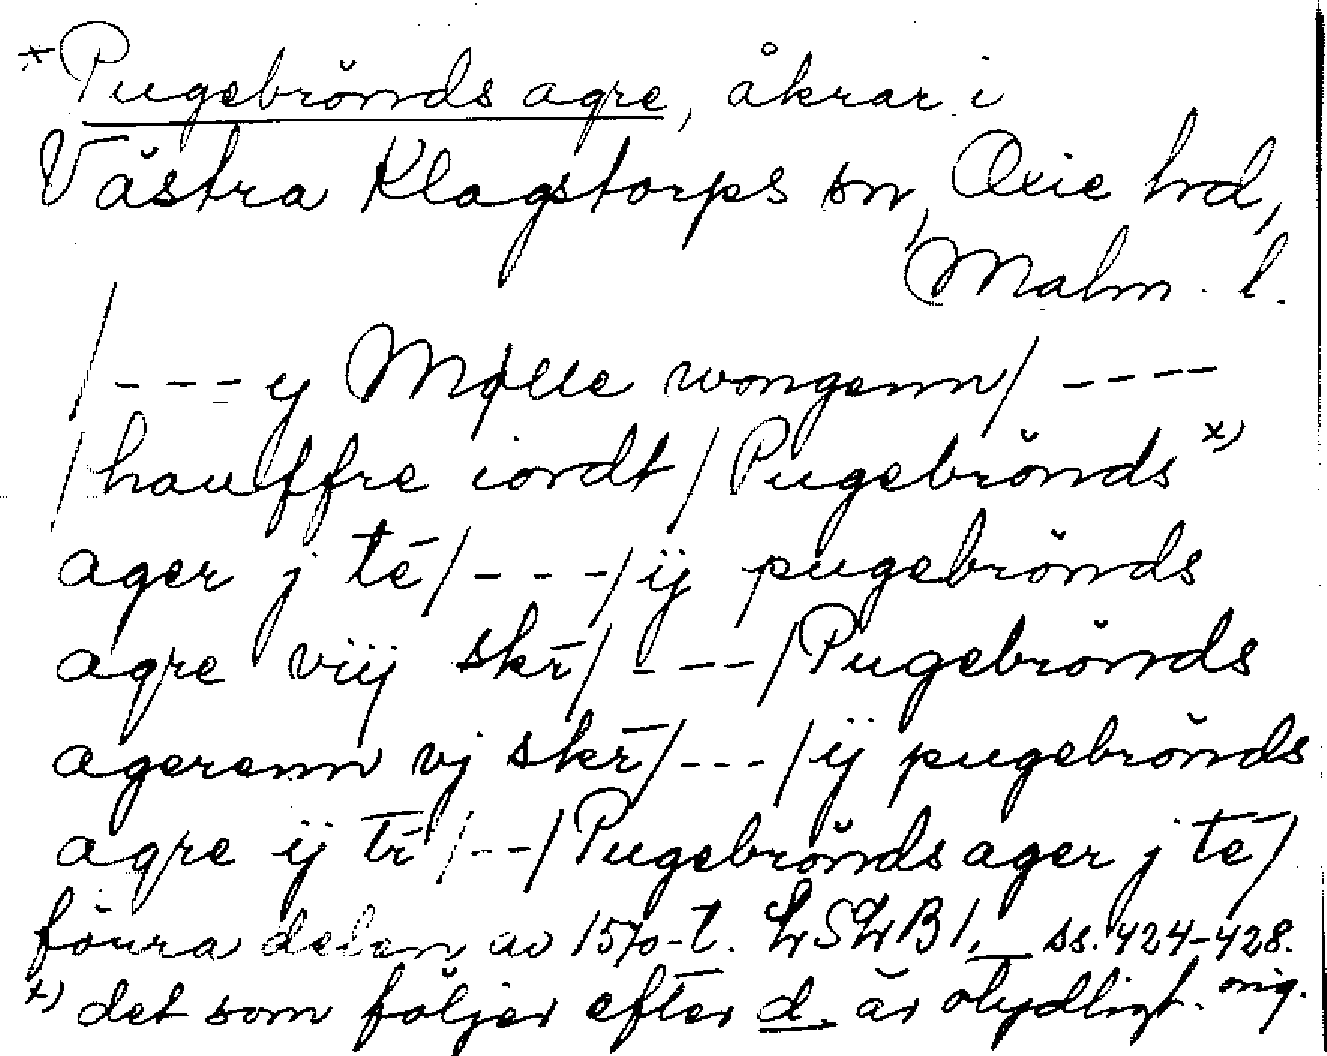 *Pugebrönds agre, åkrar i
Västra Klagstorps sn, Oxie hd,
Malm. l.
/---y Mølle wongenn/ ----
/hauffre iordt/Pugebrönds x)
ager j tē/---/ij pugebrönds
agre viij skr̄/---/Pugebrönds
agerenn vj skr̄/---/ij pugebrönds
agre ij tr̄/--/Pugebrönds ager j tē/
förra delen av 1570-t. LSLB1, ss. 424-428.
x) det som följer efter d. är otydligt. orig.